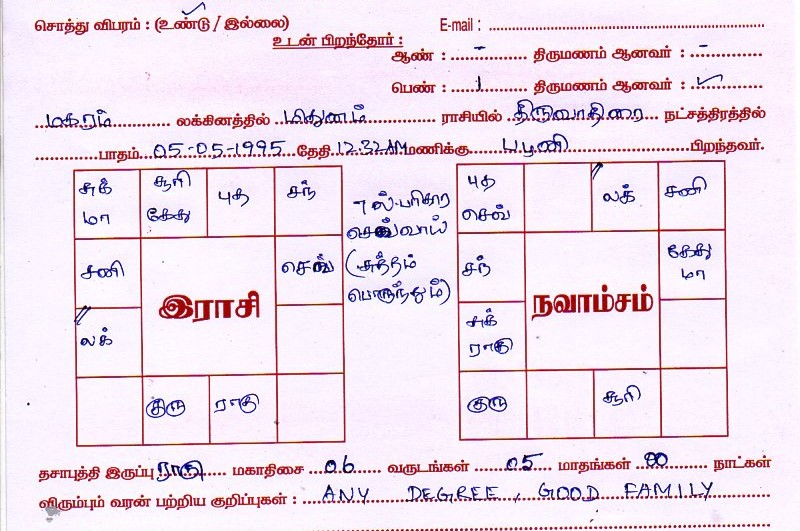 சொத்து விபரம் : (உண்டு / இல்லை) E-mail :
உடன் பிறந்தோர் :
ஆண் : - திருமணம் ஆனவர் : -
பெண் : 1 திருமணம் ஆனவர் : ✓
மகரம் லக்கினத்தில் மிதுனம் ராசியில் திருவாதிரை நட்சத்திரத்தில்
பாதம் 05-05-1995 தேதி 12.32AM மணிக்கு பழனி பிறந்தவர்.
சுக் மா
சூரி கேது
புத
சந்
சனி
செவ்
இராசி
லக்
குரு
ராகு
7ல் பரிகார
செவ்வாய்
(சுத்தம்
பொருந்தும்)
புத செவ்
லக்
சனி
சந்
கேது மா
நவாம்சம்
சுக் ராகு
குரு
சூரி
தசாபுத்தி இருப்பு ராகு மகாதிசை 06 வருடங்கள் 05 மாதங்கள் 00 நாட்கள்
விரும்பும் வரன் பற்றிய குறிப்புகள் : ANY DEGREE, GOOD FAMILY